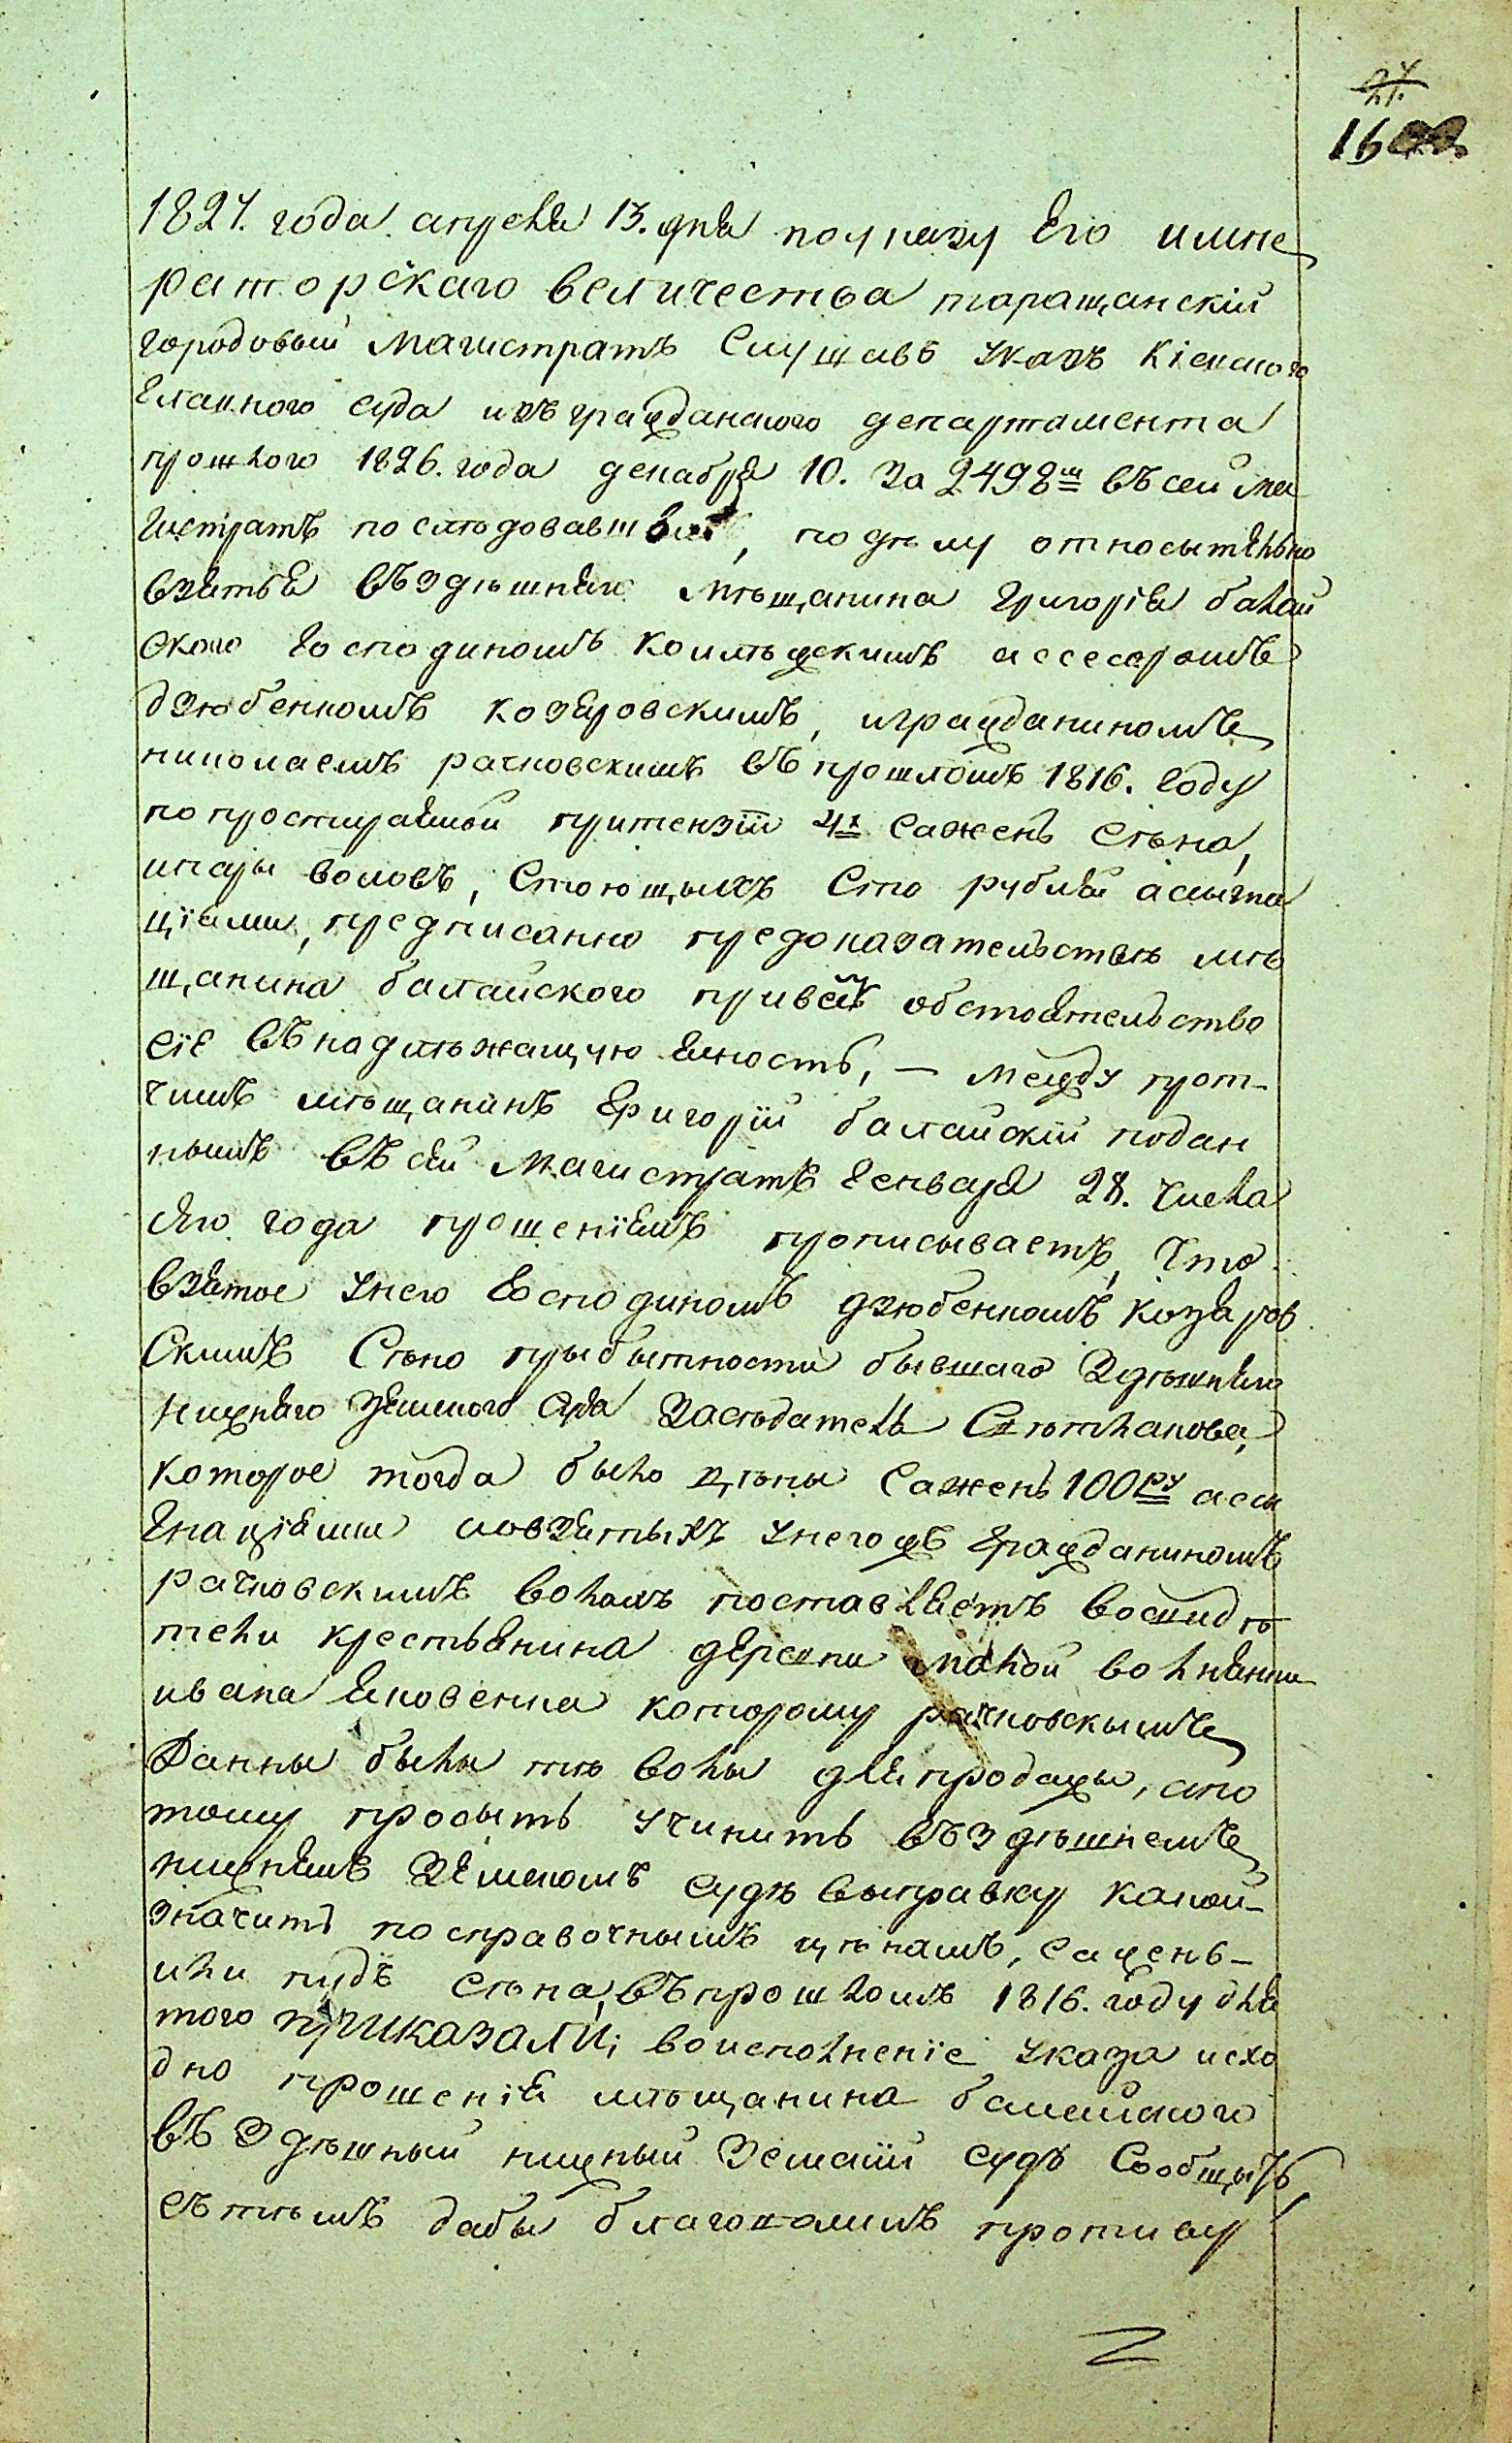 24.
16
1827. года апреля 13. дня поуказу Его импе
раторскаго величества таращанскій
городовый магистратъ Слушавъ указъ Кіевскаго
Главного суда изъ гражданского департамента
прошлого 1826. года декабря 10. За 2498м въсей ма
гистратъ последовавшій, поделу относытельно
взятья въздешняго мѣщанина Григорія балай
ского Господиномъ колѣжскимъ ассесоромъ
дзюбенкомъ козеровскимъ, играждaниномъ
николаемъ рачковскимъ въ прошломъ 1816. Году
по простираемой притензіи 4х Сажень Сѣна,
ипары воловъ, Стоющыхъ Сто рублей асыгна
ціями, предписанно предоказательствѣ мѣ
щанина балайского привесть обстоятельство
сіе въ надлѣжащую ясность, — Между прот-
чимъ мѣщанинъ Григорій балайскій подан
нымъ въ сей Магистратъ Генваря 28. Числа
сего года прошеніемъ прописываетъ, Что
взятое унего Господиномъ дзюбенкомъ козяров
Скимъ Сѣно прыбытности бывшаго Здѣшняго
нижняго Земского Суда Засѣдателя Слѣтханова,
которое тогда было цѣны Сажень 100ру асси
Гнаціями иовзятыхъ унегожъ Гражданиномъ
рачковскимъ волахъ поставляетъ восвидѣ
тели крестьянина деревни малой волнянки
ивана яковенка которому рачковскымъ
Данны были тѣ волы дляпродажы, апо
тому просыть учинить въздѣшнемъ
нижнемъ Земскомъ Судѣ выправку какой-
значить посправочнымъ цѣнамъ, Сажень-
или пудъ сѣна, въпрошломъ 1816. Году для
того приказали; воисполненіе указа исхо
дно прошенія мѣщанина балайского
въ Здѣшный нижный Земскій Судъ Сообщыть
сътѣмъ дабы благоволилъ противу